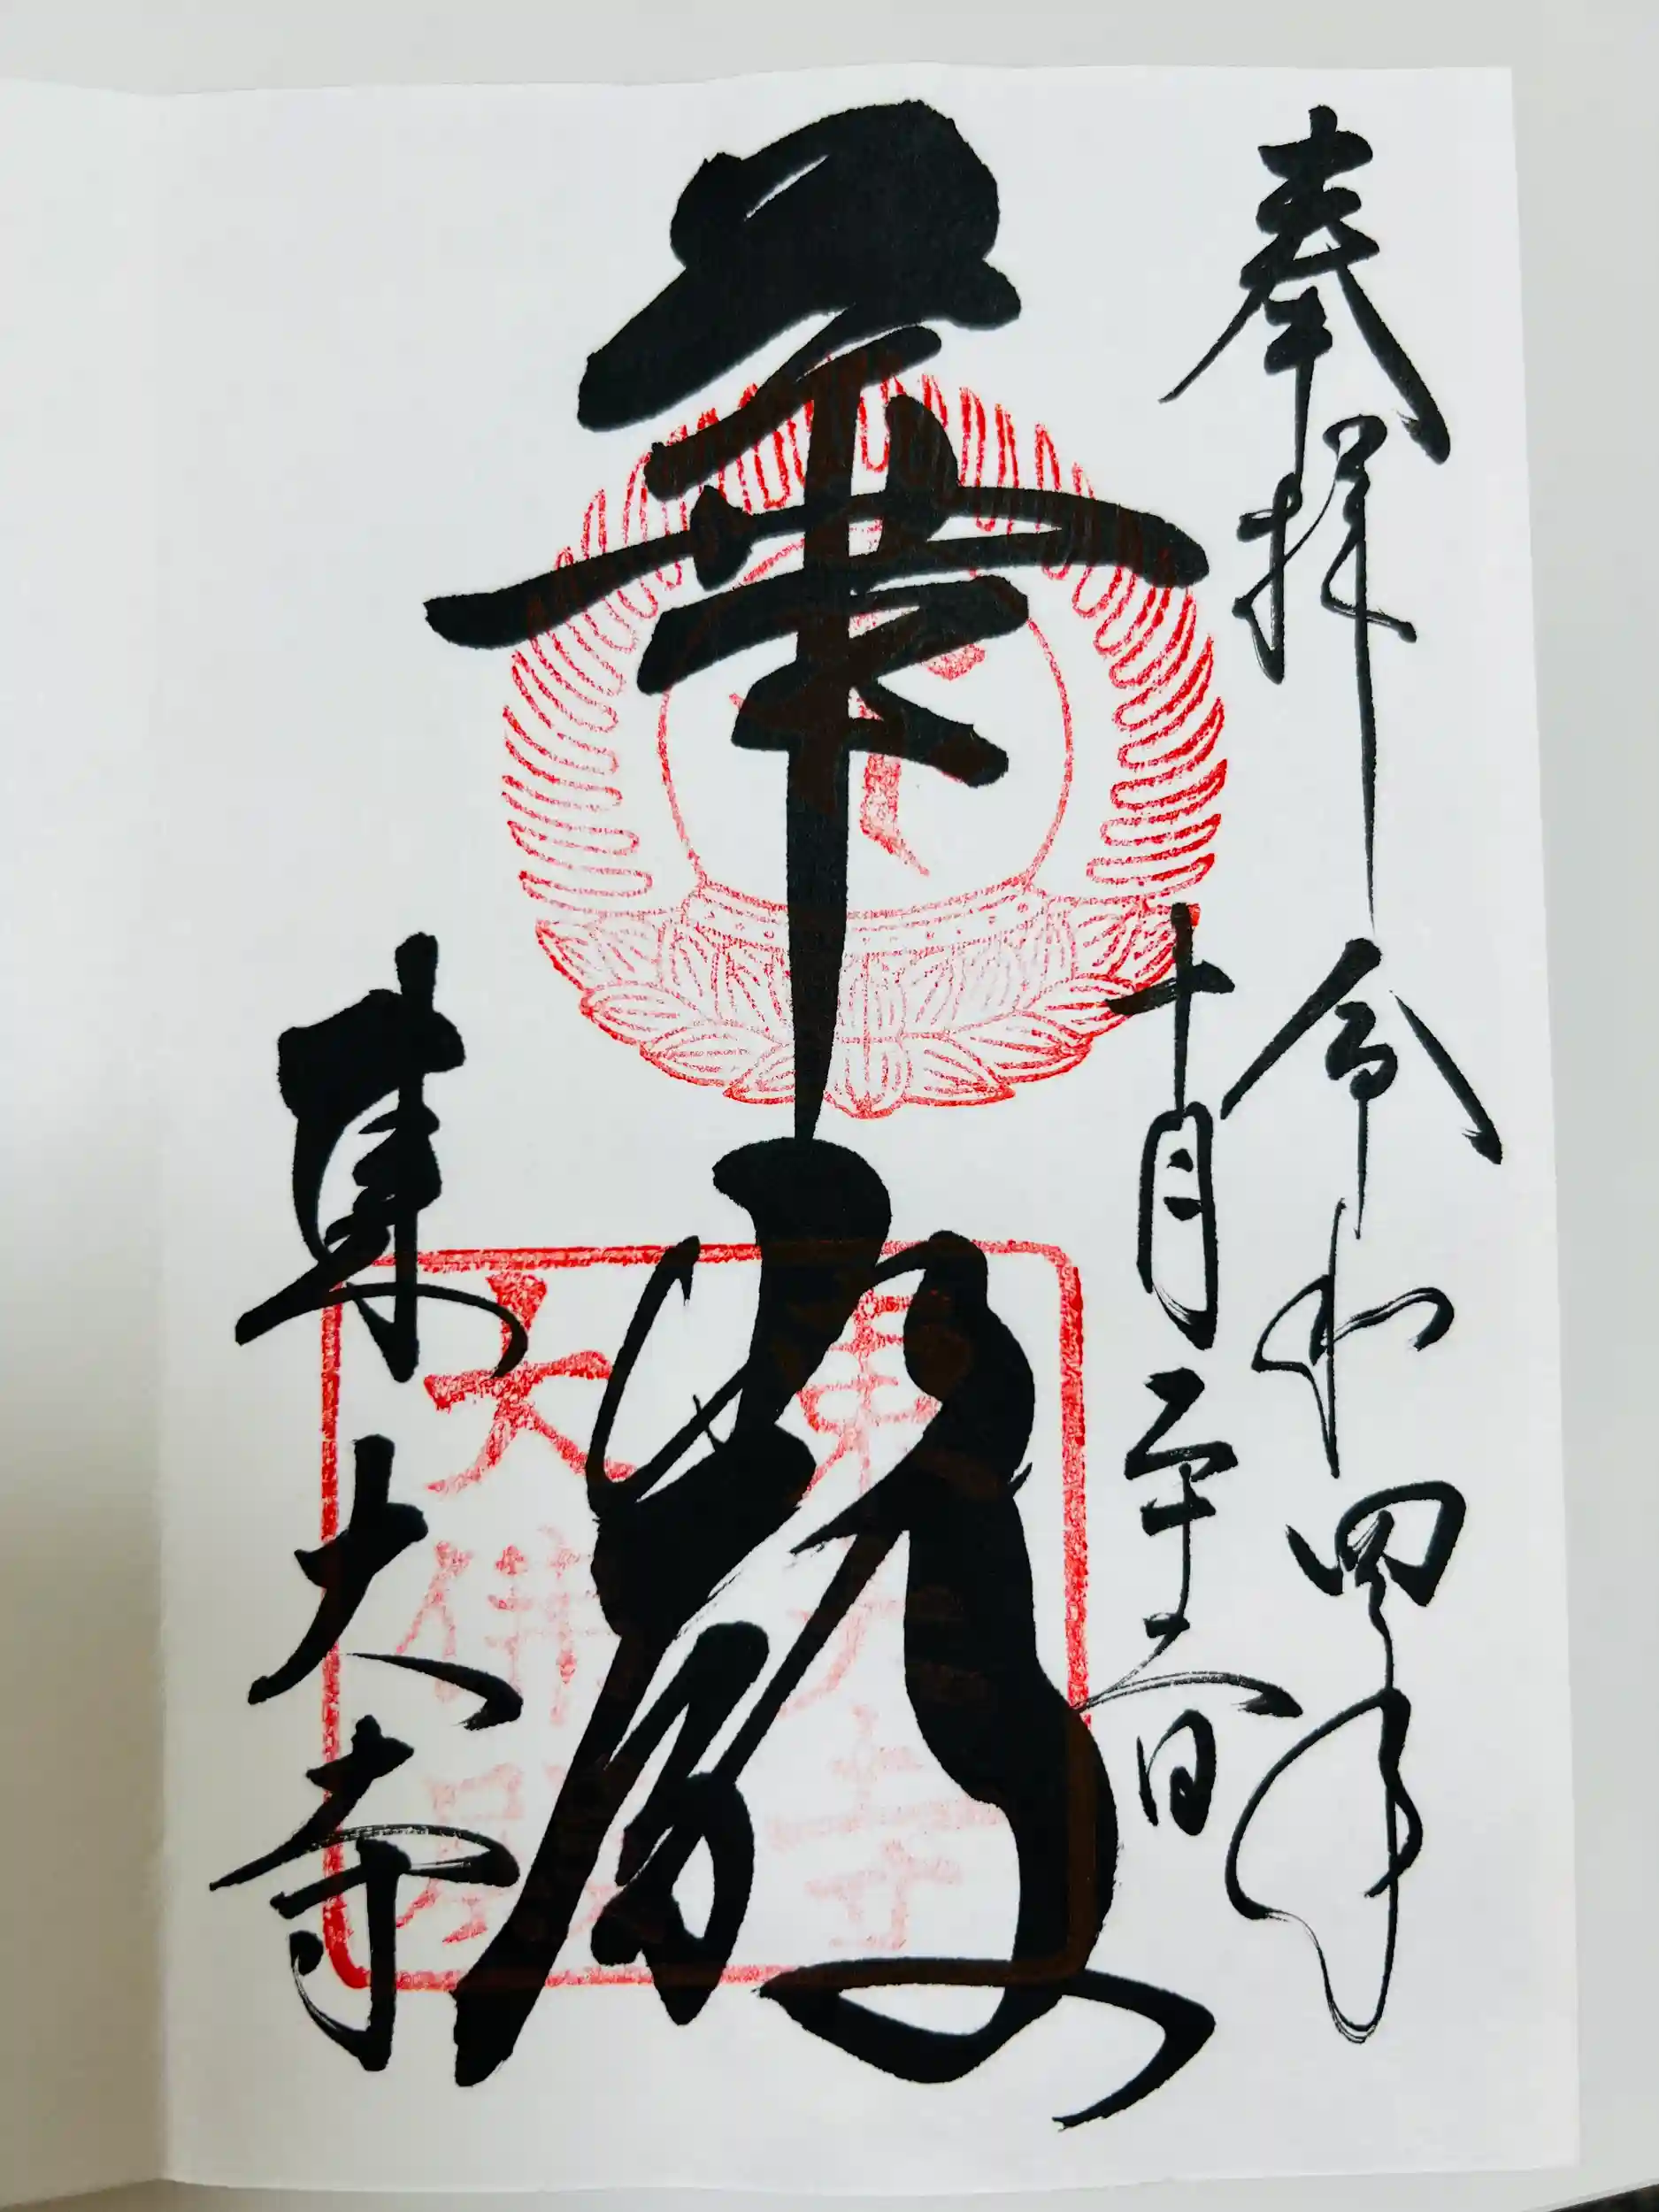 奉拝 令和四年
十月二十六日
華厳
東大寺
東大寺
大佛殿